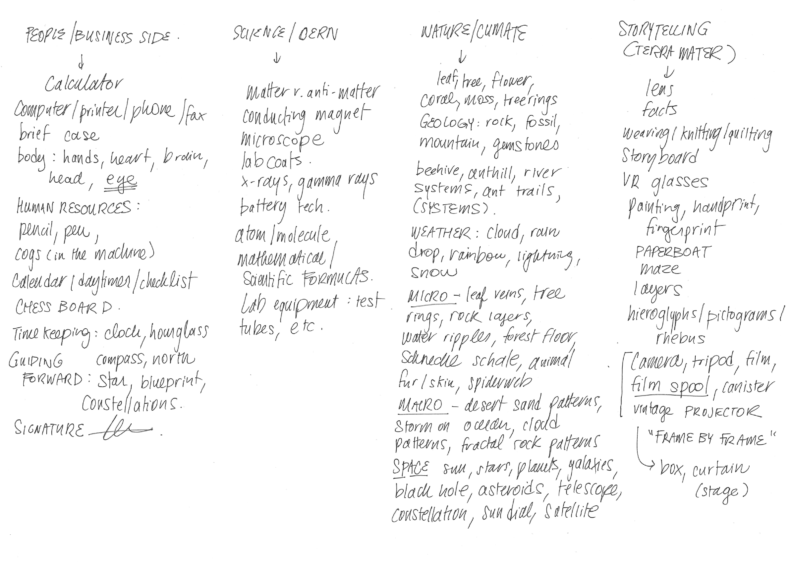 PEOPLE/BUSINESS SIDE.
↓
Calculator
Computer/printer/phone/fax
brief case
body: hands, heart, brain,
head, eye
HUMAN RESOURCES:
pencil, pen,
cogs (in the machine)
Calendar/daytimer/checklist
CHESS BOARD.
Time keeping: clock, hourglass
GUIDING compass, north
FORWARD: Star, blueprint,
Constellations.
SIGNATURE
SCIENCE/OERN
↓
Matter v. anti-matter
conducting magnet
microscope
lab coats.
x-rays, gamma rays
battery tech.
atom/molecule
mathematical/
Scientific FORMULAS.
Lab equipment: test
tubes, etc.
NATURE/CLIMATE
↓
leaf, tree, flower,
coral, moss, tree rings
GEOLOGY: rock, fossil,
mountain, gemstones
beehive, anthill, river
systems, ant trails,
(SYSTEMS).
WEATHER: cloud, rain
drop, rainbow, lightning,
snow
MICRO - leaf veins, tree
rings, rock layers,
water ripples, forest floor,
Schnecke schale, animal
fur/skin, spiderweb
MACRO - desert sand patterns,
Storm on ocean, cloud
patterns, fractal rock patterns
SPACE sun, stars, planets, galaxies,
black hole, asteroids, telescope,
constellation, sun dial, satellite
STORYTELLING
(TERRA MATER)
↓
lens
facts
weaving/knitting/quilting
Storyboard
VR glasses
painting, handprint,
fingerprint
PAPERBOAT
maze
layers
hieroglyphs/pictograms/
rhebus
Camera, tripod, film,
film spool, canister
vintage PROJECTOR
"FRAME BY FRAME"
box, curtain
(stage)